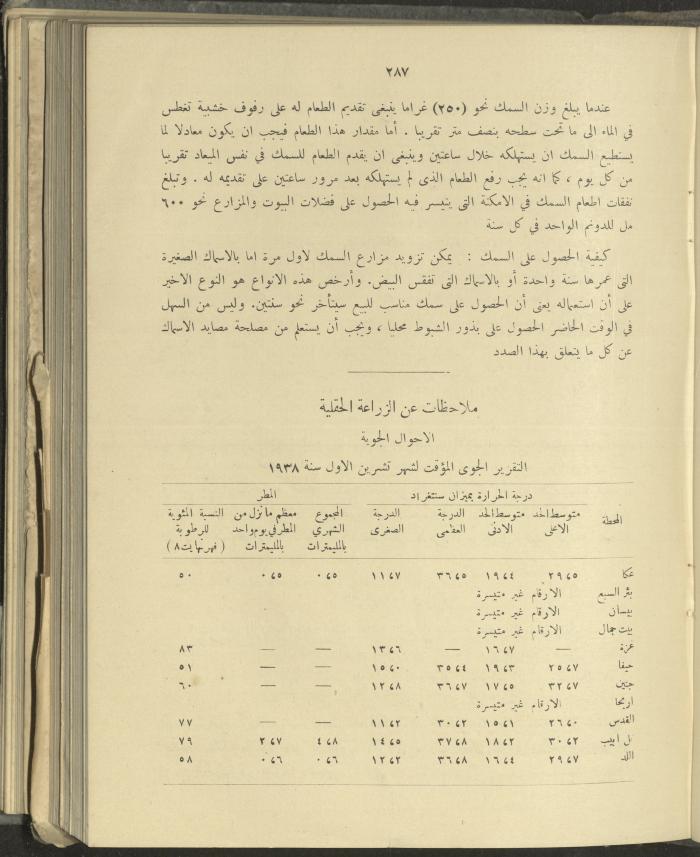 ٢٨٧
عندما يبلغ وزن السمك نحو (٢٥٠) غراما ينبغى تقديم الطعام له على رفوف خشبية تغطس
في الماء الى ما تحت سطحه بنصف متر تقريبا . أما مقدار هذا الطعام فيجب ان يكون معادلا لما
يستطيع السمك ان يستهلكه خلال ساعتين وينبغى ان يقدم الطعام للسمك في نفس الميعاد تقريبا
من كل يوم ، كما انه يجب رفع الطعام الذى لم يستهلكه بعد مرور ساعتين على تقديمه له . وتبلغ
نفقات اطعام السمك في الامكنة التى يتيسر فيه الحصول على فضلات البيوت والمزارع نحو ٦٠٠
مل للدونم الواحد في كل سنة
كيفية الحصول على السمك : يمكن تزويد مزارع السمك لاول مرة اما بالاسماك الصغيرة
التى عمرها سنة واحدة أو بالاسماك التى تفقس البيض. وأرخص هذه الانواع هو النوع الاخير
على أن استعماله يعنى أن الحصول على سمك مناسب للبيع سيتأخر نحو سنتين. وليس من السهل
في الوقت الحاضر الحصول على بذور الشبوط محليا ، ويجب أن يستعلم من مصلحة مصايد الاسماك
عن كل ما يتعلق بهذا الصدد
ملاحظات عن الزراعة الحقلية
الاحوال الجوية
التقرير الجوى المؤقت لشهر تشرين الاول سنة ١٩٣٨
درجة الحرارة بميزان سنتغراد المطر
المحطة متوسط الحد متوسط الحد الدرجة الدرجة المجموع معظم ما نزل من النسبة المئوية
الاعلى الادنى العظمى الصغرى الشهري المطر في يوم واحد للرطوبة
بالمليمترات بالمليمترات (فهرنهايت ٨)
عكا ٢٩،٥ ١٩،٤ ٣٦،٥ ١١،٧ ٠،٥ ٠،٥ ٥٠
بئر السبع الارقام غير متيسرة
بيسان الارقام غير متيسرة
بيت جمال الارقام غير متيسرة
غزة — ١٦،٧ — ١٣،٦ — — ٨٣
حيفا ٢٥،٧ ١٩،٣ ٣٥،٤ ١٥،٠ — — ٥١
جنين ٣٢،٧ ١٧،٥ ٣٦،٧ ١٢،٨ — — ٦٠
اريحا الارقام غير متيسرة
القدس ٢٦،٠ ١٥،١ ٣٠،٢ ١١،٢ — — ٧٧
تل ابيب ٣٠،٢ ١٨،٢ ٣٧،٨ ١٤،٥ ٤،٨ ٢،٧ ٧٩
اللد ٢٩،٧ ١٦،٤ ٣٦،٨ ١٢،٢ ٠،٦ ٠،٦ ٥٨